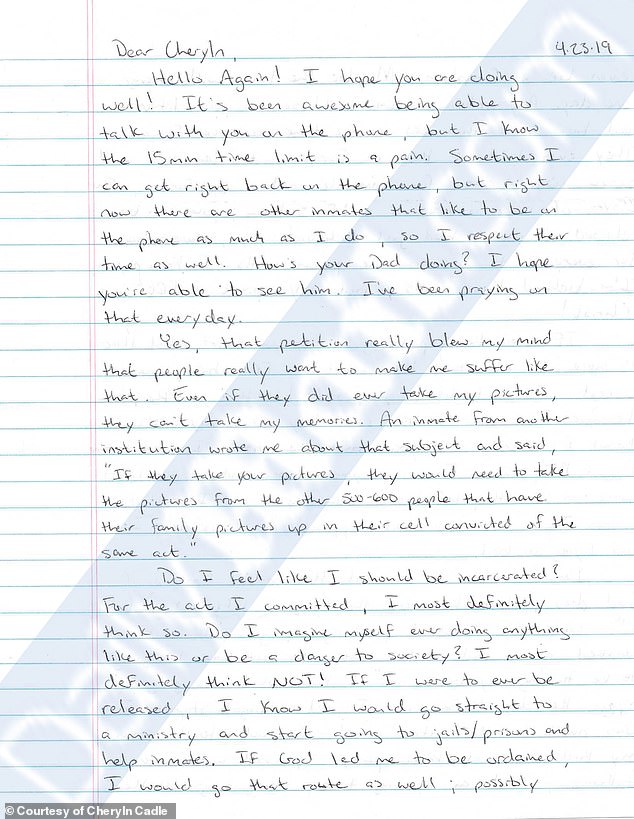 Dear Cheryln, 4.23.19
Hello Again! I hope you are doing
well! It's been awesome being able to
talk with you on the phone, but I know
the 15min time limit is a pain. Sometimes I
can get right back on the phone, but right
now there are other inmates that like to be on
the phone as much as I do, so I respect their
time as well. How's your Dad doing? I hope
you're able to see him. I've been praying on
that everyday.
Yes, that petition really blew my mind
that people really want to make me suffer like
that. Even if they did ever take my pictures,
they can't take my memories. An inmate from another
institution wrote me about that subject and said,
"If they take your pictures, they would need to take
the pictures from the other 500-600 people that have
their family pictures up in their cell convicted of the
same act."
Do I feel like I should be incarcerated?
For the act I committed, I most definitely
think so. Do I imagine myself ever doing anything
like this or be a danger to society? I most
definitely think NOT! If I were to ever be
released, I know I would go straight to
a ministry and start going to jails/prisons and
help inmates. If God led me to be ordained,
I would go that route as well; possibly
© Courtesy of Cheryln Cadle